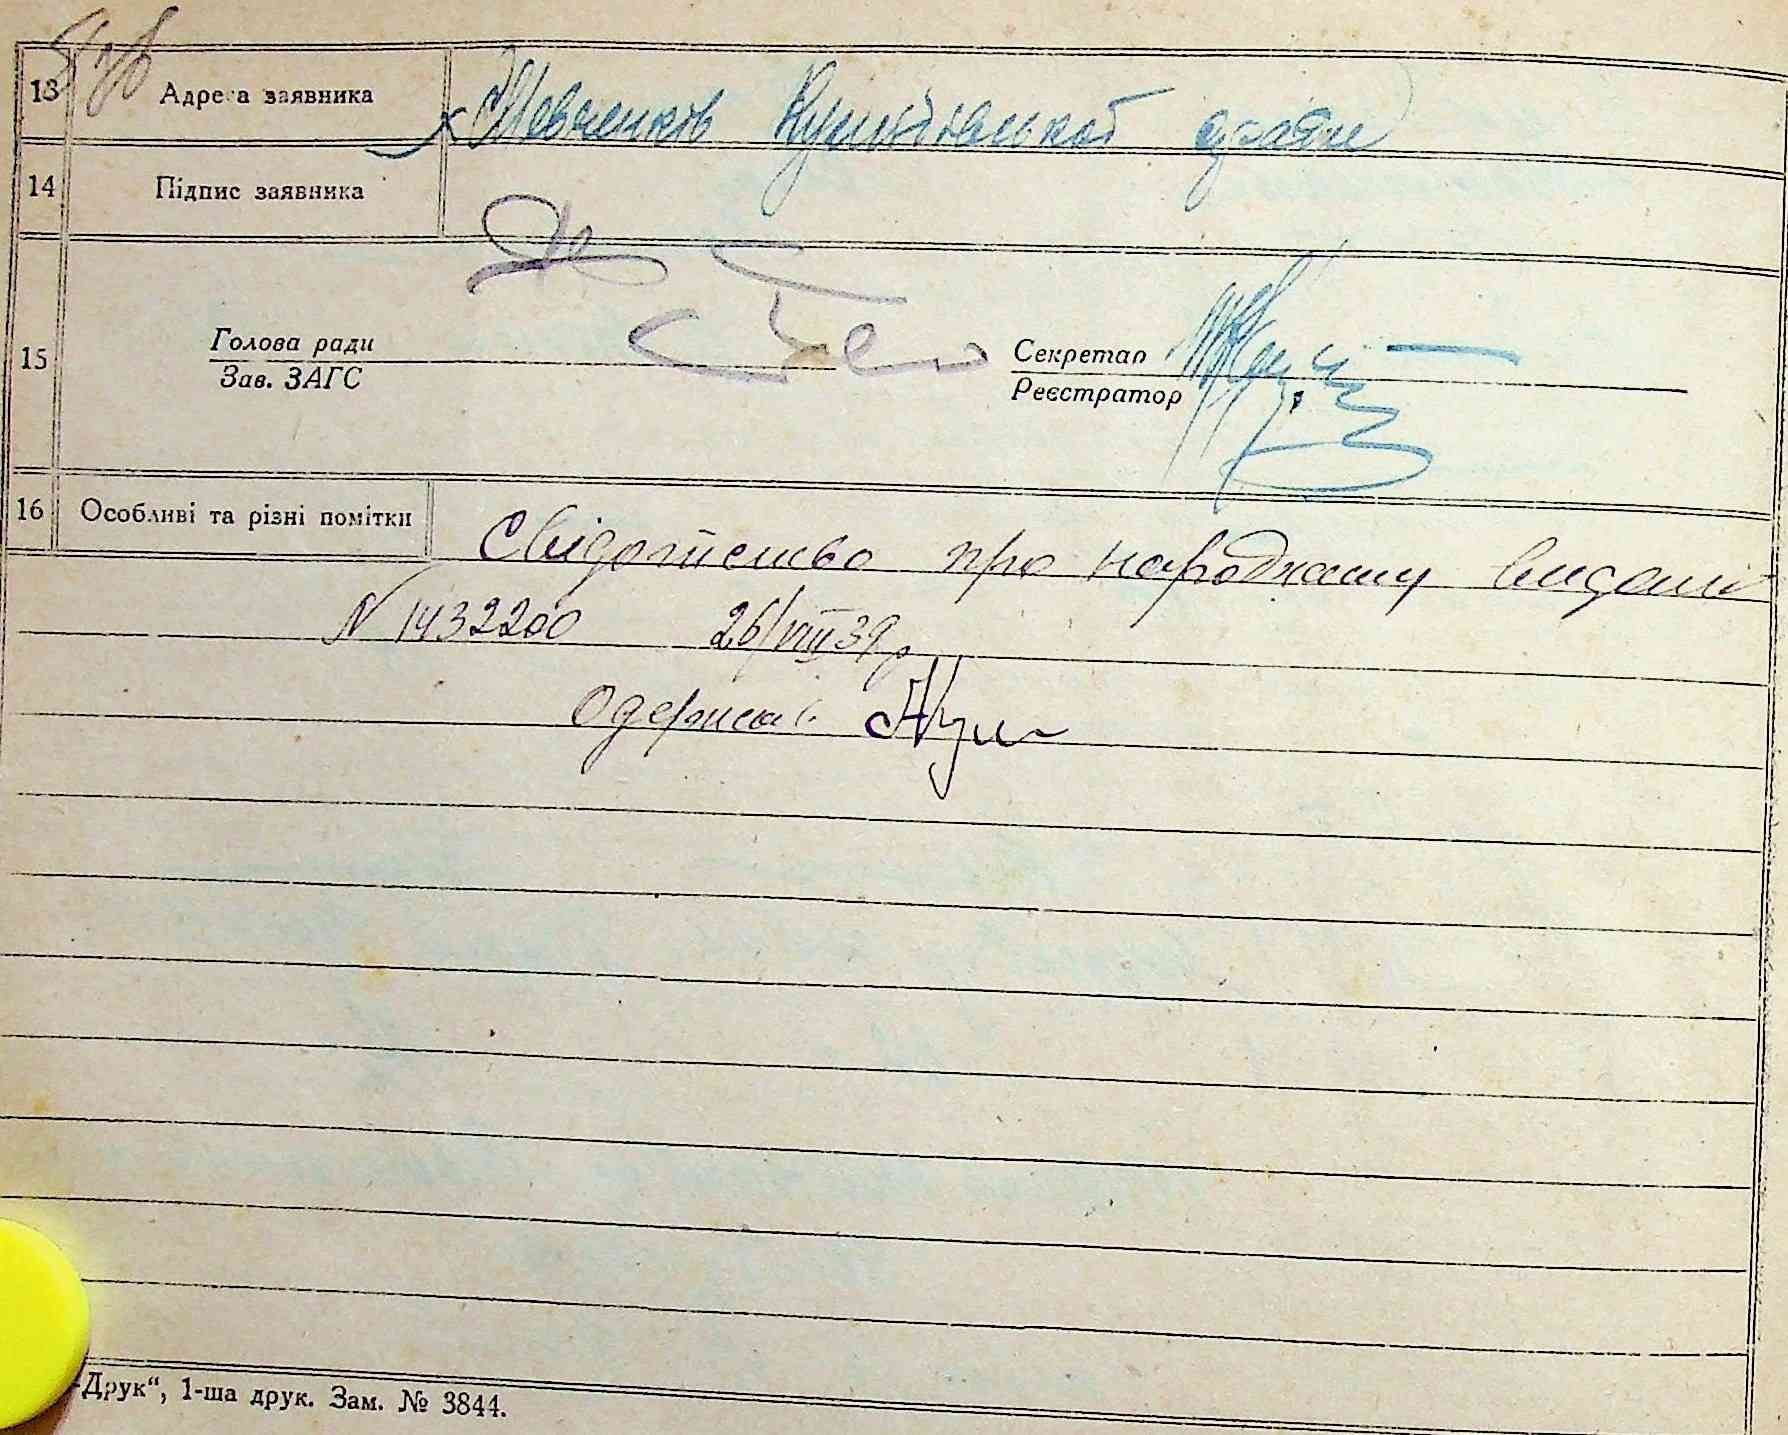 13 Адреса заявника х. Шевченків
14 Підпис заявника
15 Голова ради
Зав. ЗАГС
Секретар
Реєстратор
16 Особливі та різні помітки Свідотство про народження видано
N 1432200 26/VIII 39 р
Одержав
-Друк“, 1-ша друк. Зам. № 3844.